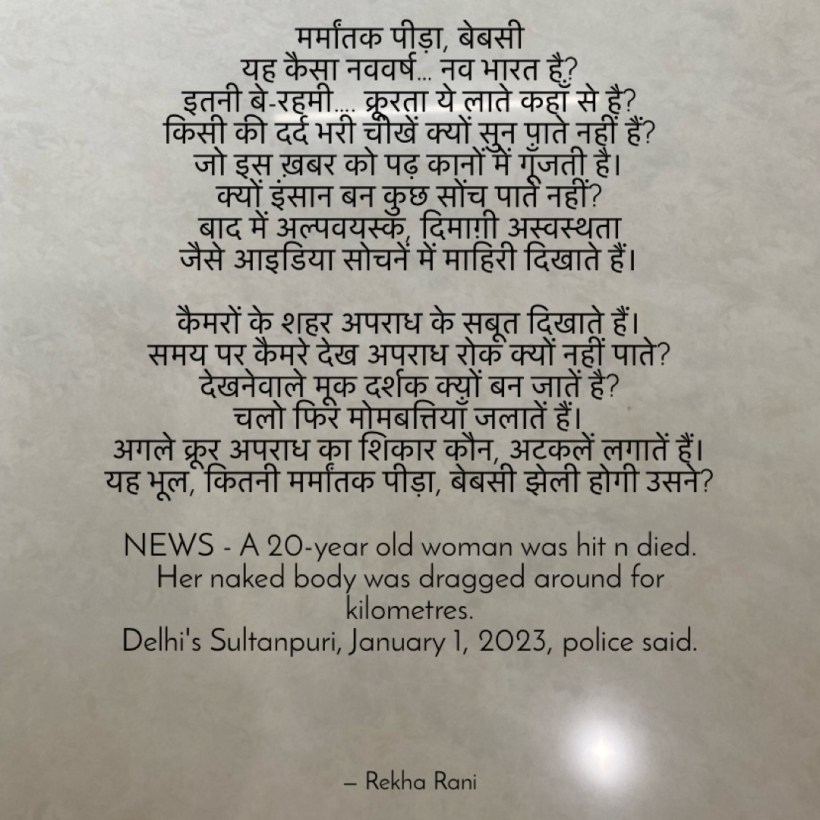 मर्मांतक पीड़ा, बेबसी
यह कैसा नववर्ष... नव भारत है?
इतनी बे-रहमी.... क्रूरता ये लाते कहाँ से है?
किसी की दर्द भरी चीखें क्यों सुन पाते नहीं हैं?
जो इस ख़बर को पढ़ कानों में गूँजती है।
क्यों इंसान बन कुछ सोंच पाते नहीं?
बाद में अल्पवयस्क, दिमाग़ी अस्वस्थता
जैसे आइडिया सोचने में माहिरी दिखाते हैं।
कैमरों के शहर अपराध के सबूत दिखाते हैं।
समय पर कैमरे देख अपराध रोक क्यों नहीं पाते?
देखनेवाले मूक दर्शक क्यों बन जातें है?
चलो फिर मोमबत्तियाँ जलातें हैं।
अगले क्रूर अपराध का शिकार कौन, अटकलें लगातें हैं।
यह भूल, कितनी मर्मांतक पीड़ा, बेबसी झेली होगी उसने?
NEWS - A 20-year old woman was hit n died.
Her naked body was dragged around for
kilometres.
Delhi's Sultanpuri, January 1, 2023, police said.
— Rekha Rani